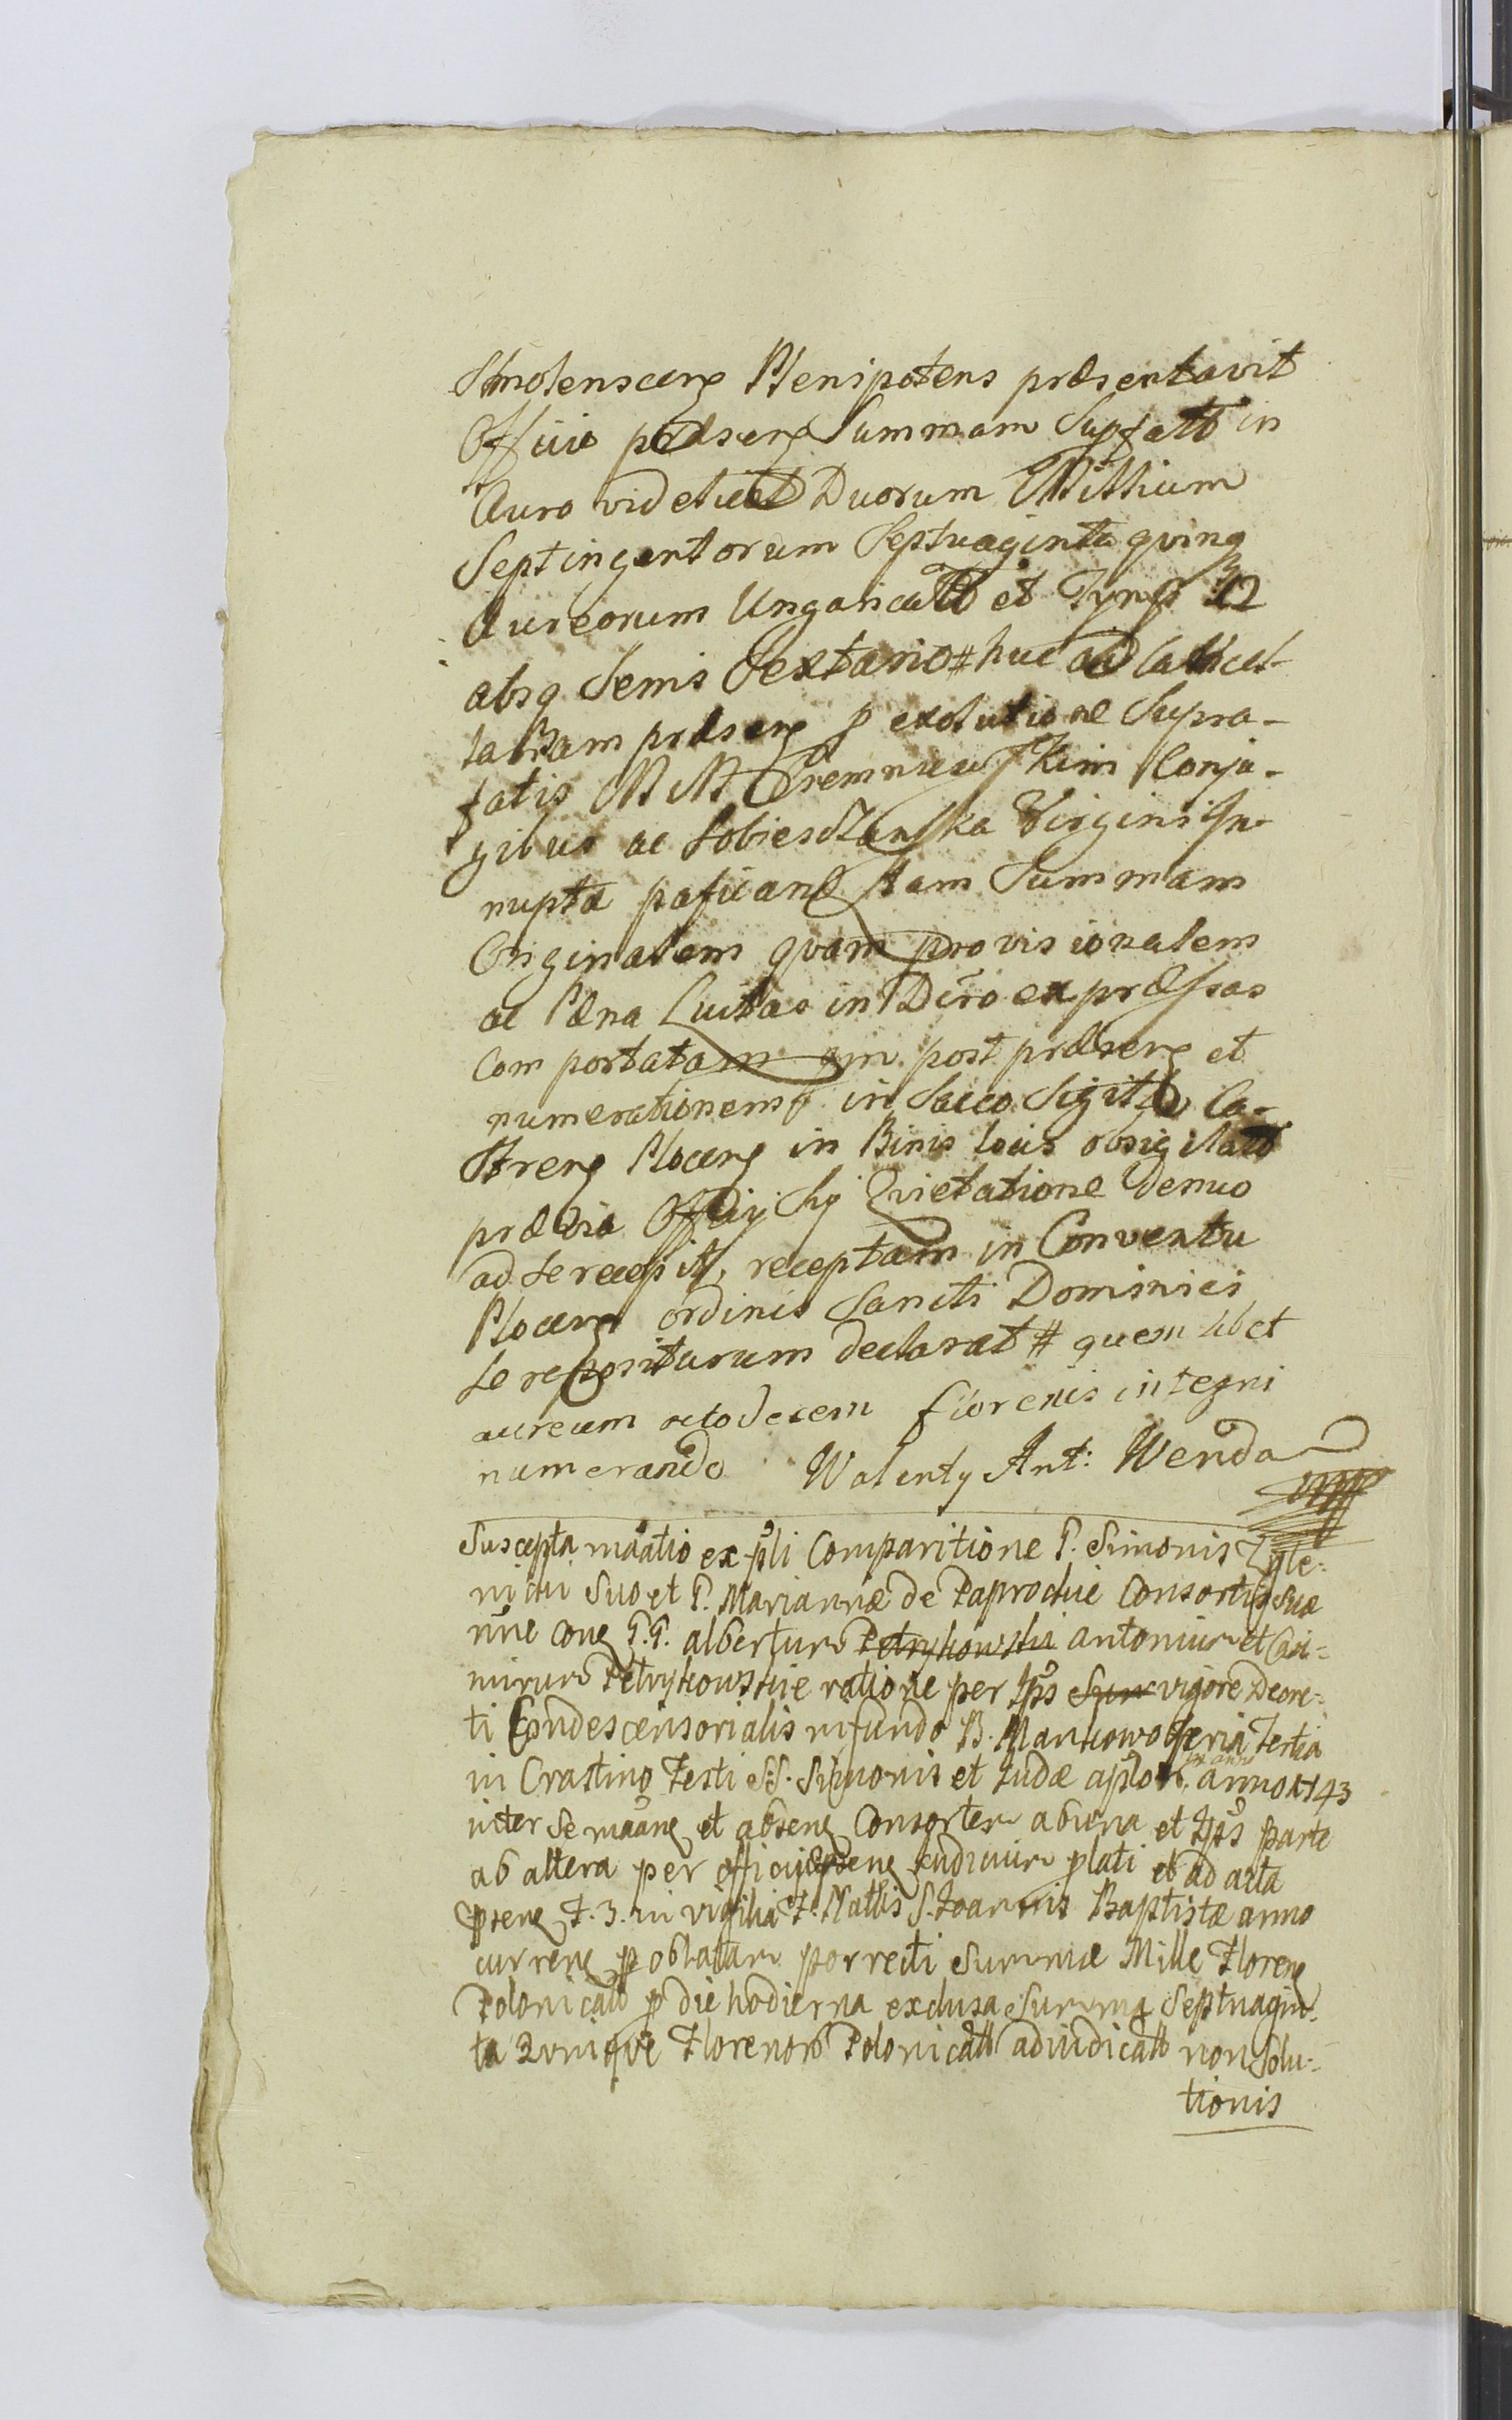 Smolenscens Plenipotens præsentavit
Officio præsens Summam Supfatt in
Auro videlicet Duorum Millium
Septingentorum Septuaginta qving
Aureorum Ungaricatt et Tynf 12
absq Semis Sextario # huc ad Cancel-
lariam præsens p exolutione Supra-
fatis MM Gremnicuskim Conju-
gibus ac Sobieszczanska Virgini In-
nupta tam Summam
Originalem qvam provisionalem
ac Pæna Luitas in Dcro expressas
Comportatam qm post præsens et
numerationem in Sacco Sigillo Ca-
strens Plocens in Binis locis obsigillato
prævia Officij Sui Qvietatione denuo
ad se recepit, receptam in Conventu
Plocens ordinis Sancti Dominici
Se repositurum declarat # quemlibet
aureum octodecem florenis integri
numerando Walenty Ant: Wenda
mpp
Suscepta mãatio ex pli Comparitione G. Simonis Zgle-
nicki Suo et G. Mariannæ de Paprockie Consortis Suæ
nñe cong G.G. albertum Petrykowski antonium et Casi-
mirum Petrykowskie ratione per Ips Sum vigore Decre-
ti Condescensorialis in fundo B. Mankowo feria Tertia
in Crastino Festi SS. Simonis et Judæ aplor. anno 1743
inter Se mãang et absens Consortem ab una et Ips parte
ab altera per officij præsens Judicium plati et ad acta
præsens F. 3. in vigilia F. Natlis S. Joannis Baptistæ anno
currens p oblatam porrecti Summæ Mille Florens
Polonicatt p die hodierna exclusa Summa Septuagin-
ta Qvinqve Florenor Polonicatt adiudicatt non Solu-
tionis